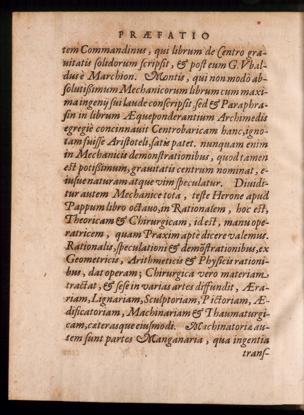 PRÆFATIO
tem Commandinus, qui librum de Centro gra-
uitatis solidorum scripsit, & post eum G. Vbal-
dus è Marchion. Montis, qui non modò ab-
solutissimum Mechanicorum librum cum maxi-
ma ingenij sui laude conscripsit, sed & Paraphra-
sin in librum Æqueponderantium Archimedis
egregiè concinnauit Centrobaricam hanc, igno-
tam fuisse Aristoteli, satis patet. nunquam enim
in Mechanicis demonstrationibus, quod tamen
est potissimum, grauitatis centrum nominat, e-
iusue naturam atque vim speculatur. Diuidi-
tur autem Mechanice tota, teste Herone apud
Pappum libro octauo, in Rationalem, hoc est,
Theoricam & Chirurgicam, id est, manu ope-
ratricem, quam Praxim aptè dicere valemus.
Rationalis, speculationi & demõstrationibus, ex
Geometricis, Arithmeticis & Physicis rationi-
bus, dat operam; Chirurgica vero materiam
tractat, & sese in varias artes diffundit, Æra-
riam, Lignariam, Sculptoriam, Pictoriam, Æ-
dificatoriam, Machinariam & Thaumaturgi-
cam, cæterasque eiusmodi. Machinatoriæ au-
tem sunt partes Manganaria, qua ingentia
transf-